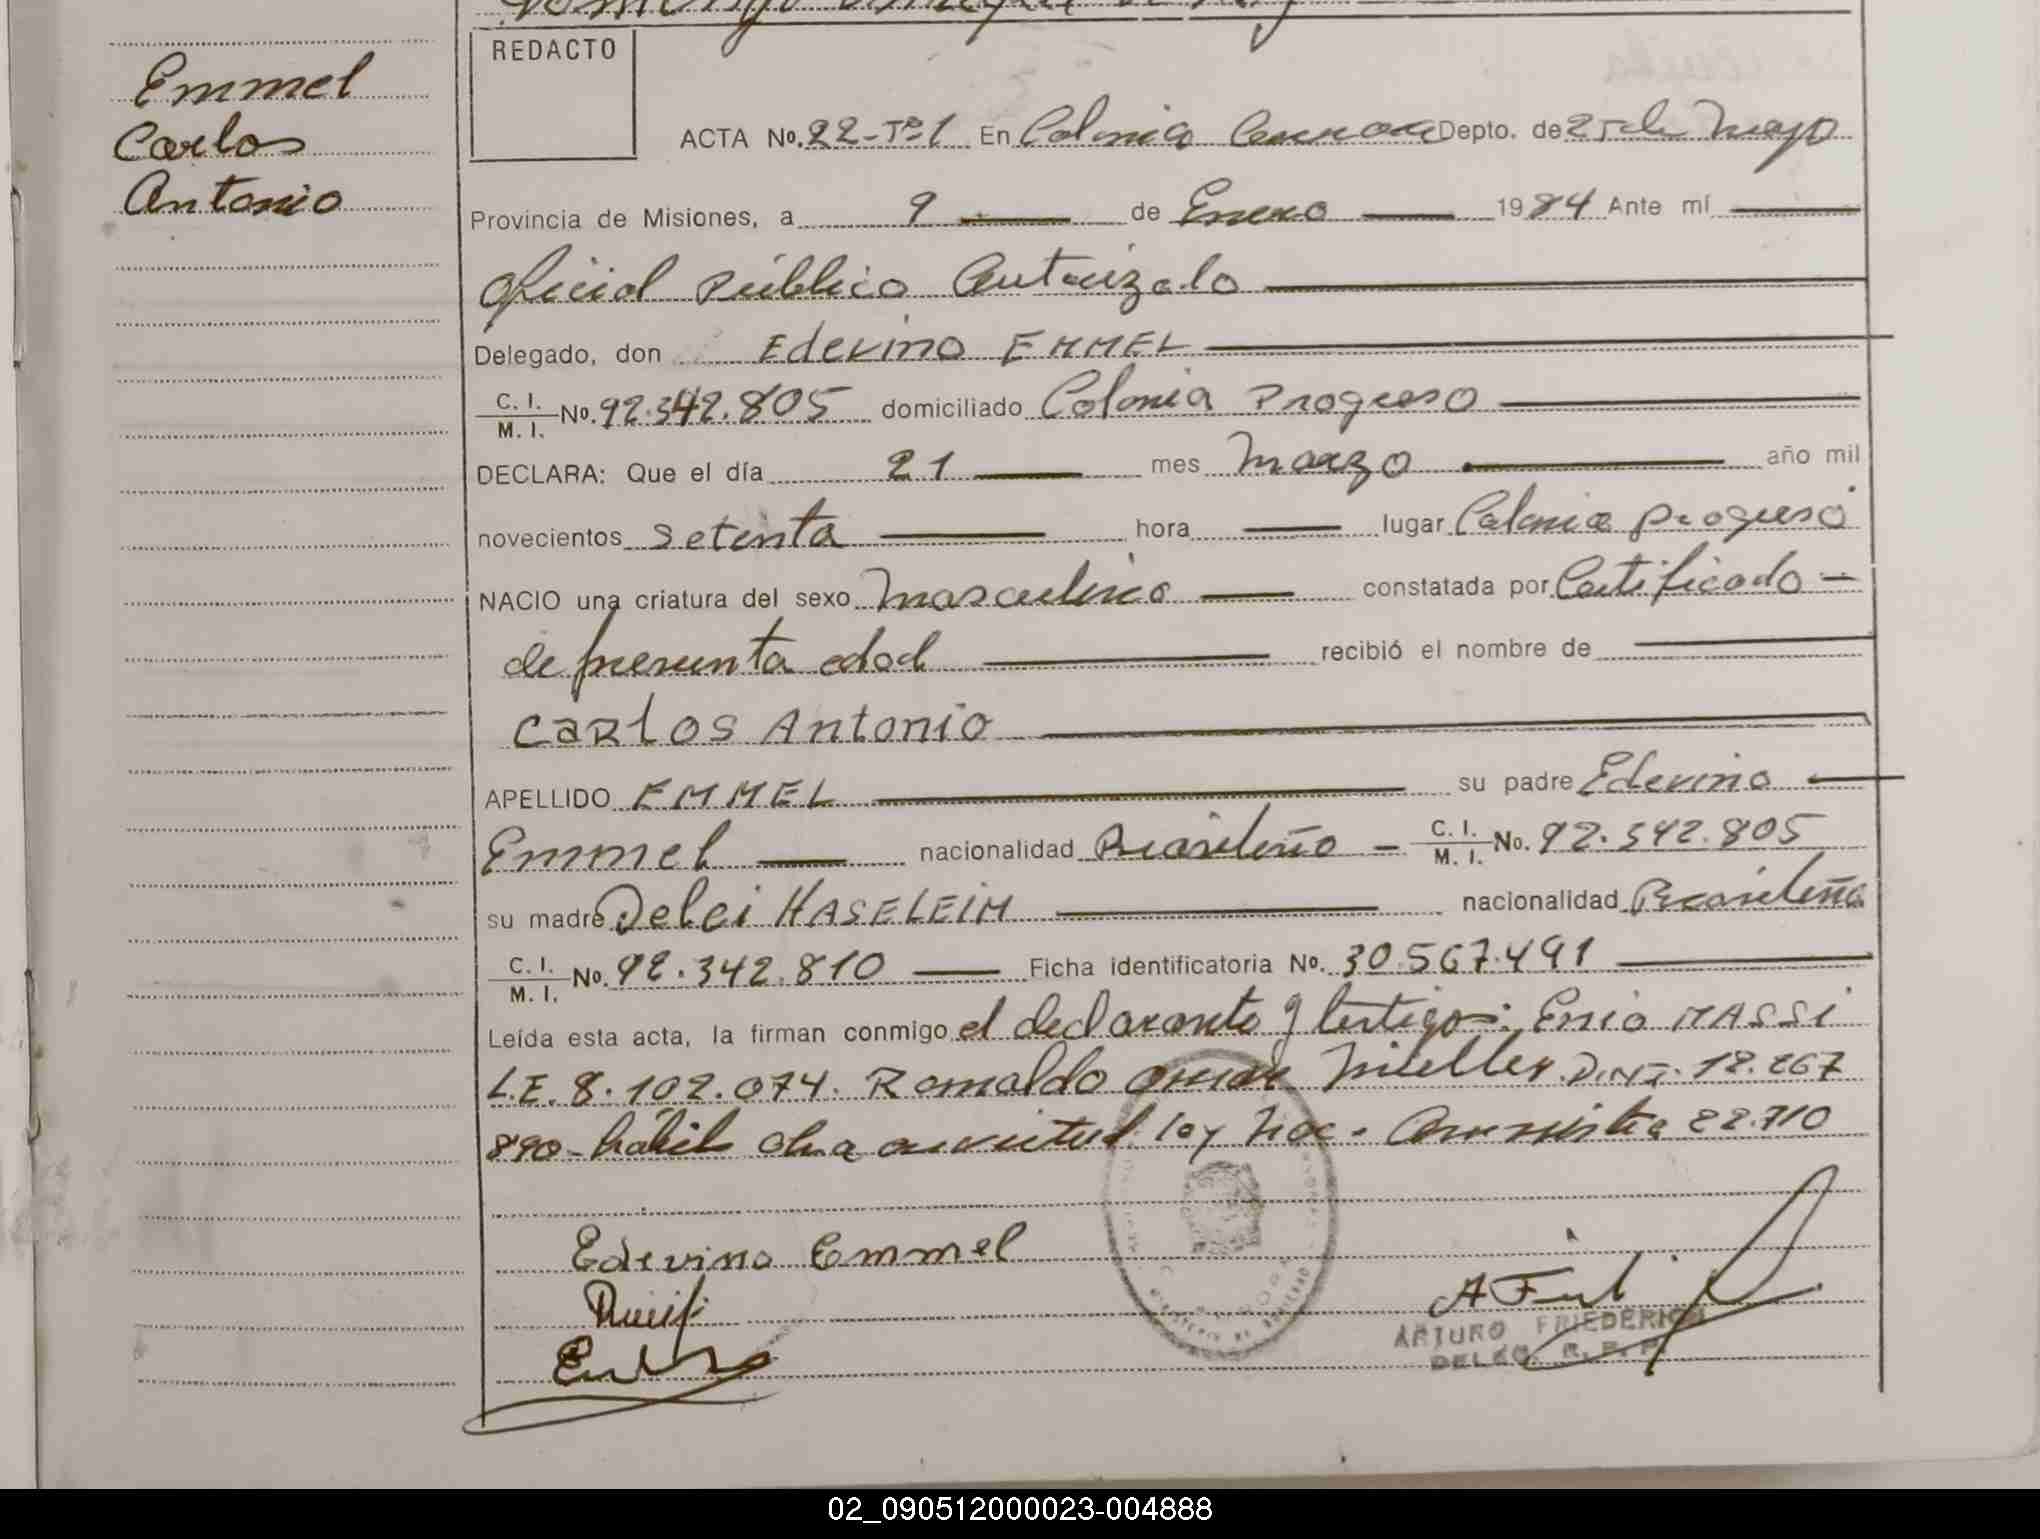 Emmel
Carlos
Antonio
REDACTO
ACTA No. 22-Tº1 En Colonia Depto. de 25 de Mayo
Provincia de Misiones, a 9 de Enero 1984 Ante mí
Oficial Público Autorizado
Delegado, don Edevino EMMEL
C. I. M. I. No. 92.342.805 domiciliado Colonia Progreso
DECLARA: Que el día 21 mes Marzo año mil
novecientos setenta hora lugar Colonia Progreso
NACIO una criatura del sexo Masculino constatada por Certificado
de presunta edad recibió el nombre de
CARLOS Antonio
APELLIDO EMMEL su padre Edevino
Emmel nacionalidad Brasileño C. I. M. I. No. 92.342.805
su madre Delci HASELEIM nacionalidad Brasileña
C. I. M. I. No. 92.342.810 Ficha identificatoria No. 30.567.491
Leída esta acta, la firman conmigo el declarante y testigos: Enio MASSI
L.E. 8.102.074. Romaldo Omar Müeller D.N.I. 18.267
890- hábil en virtud ley Nac. Amnistia 22.710
Edevino Emmel
ARTURO FRIEDERICH
DELEG. R. P. P.
02_090512000023-004888